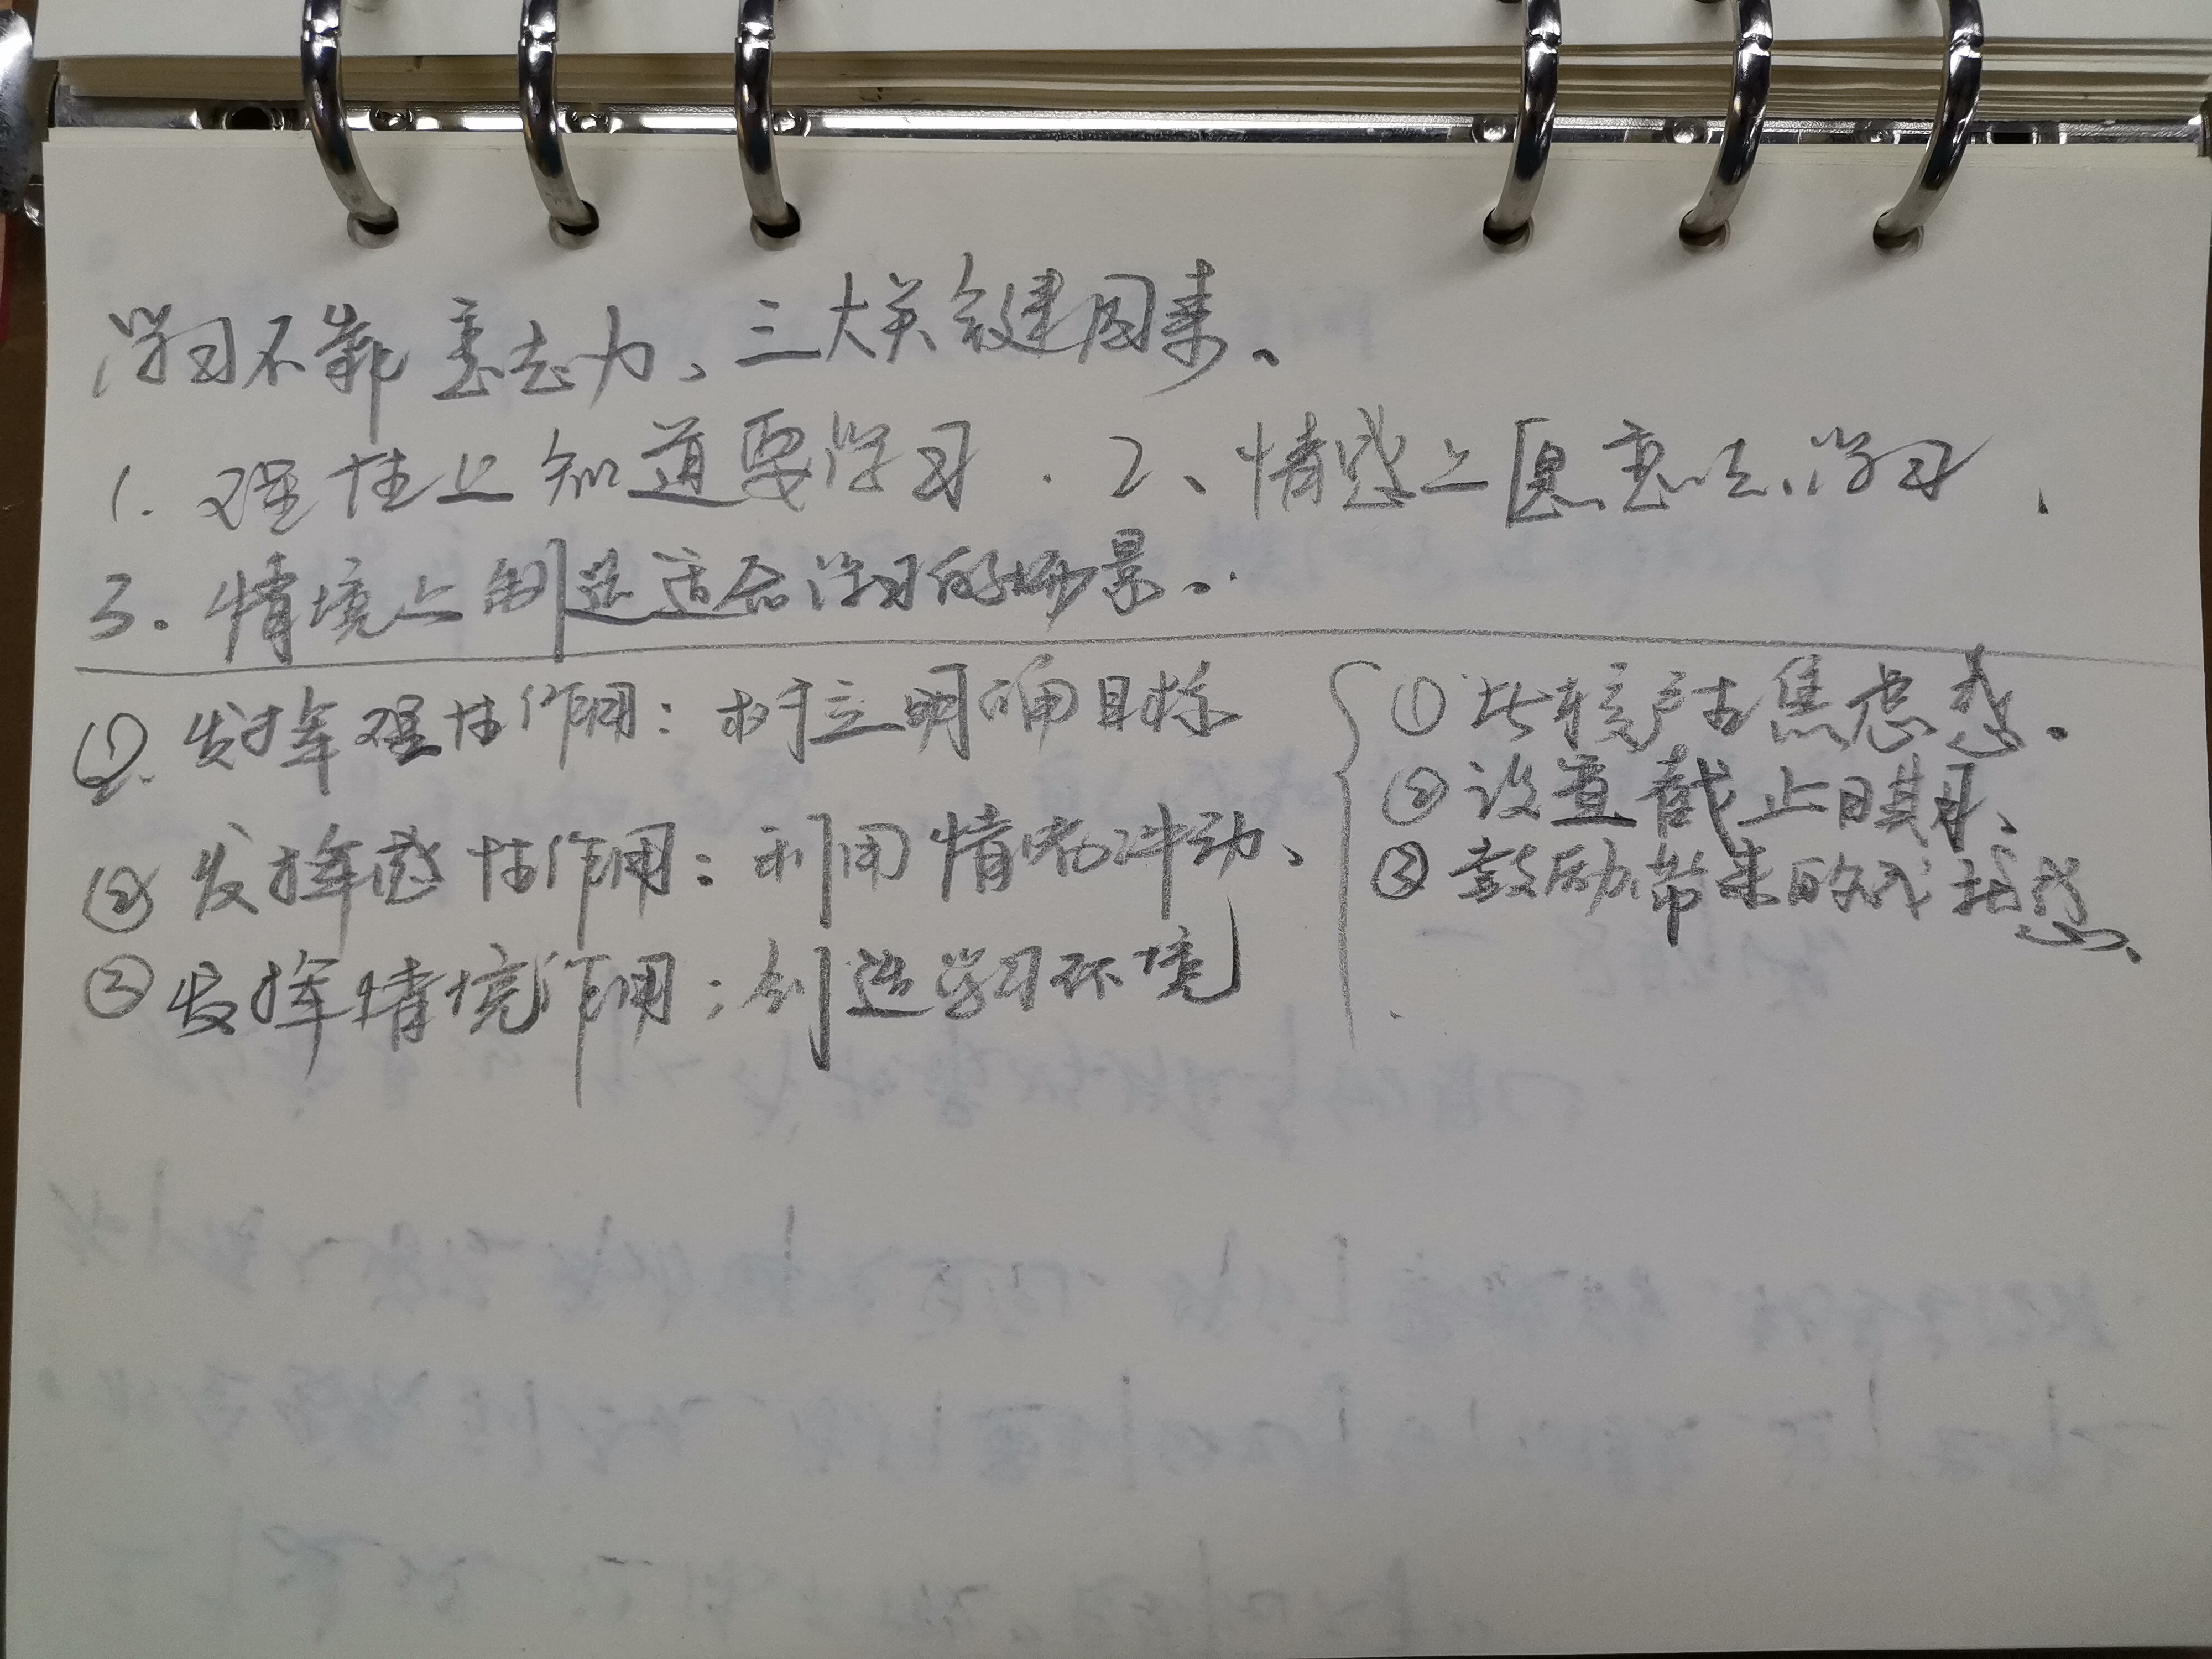 学习不靠意志力、三大关键因素、
1. 理性上知道要学习. 2、情感上愿意去学习、
3. 情境上制造适合学习的场景、
①. 发挥理性作用：树立明确目标
② 发挥感性作用：利用情绪冲动、
③ 发挥情境作用：创造学习环境
① 比较产生焦虑感.
② 设置截止日期、
③ 鼓励带来的成就感、